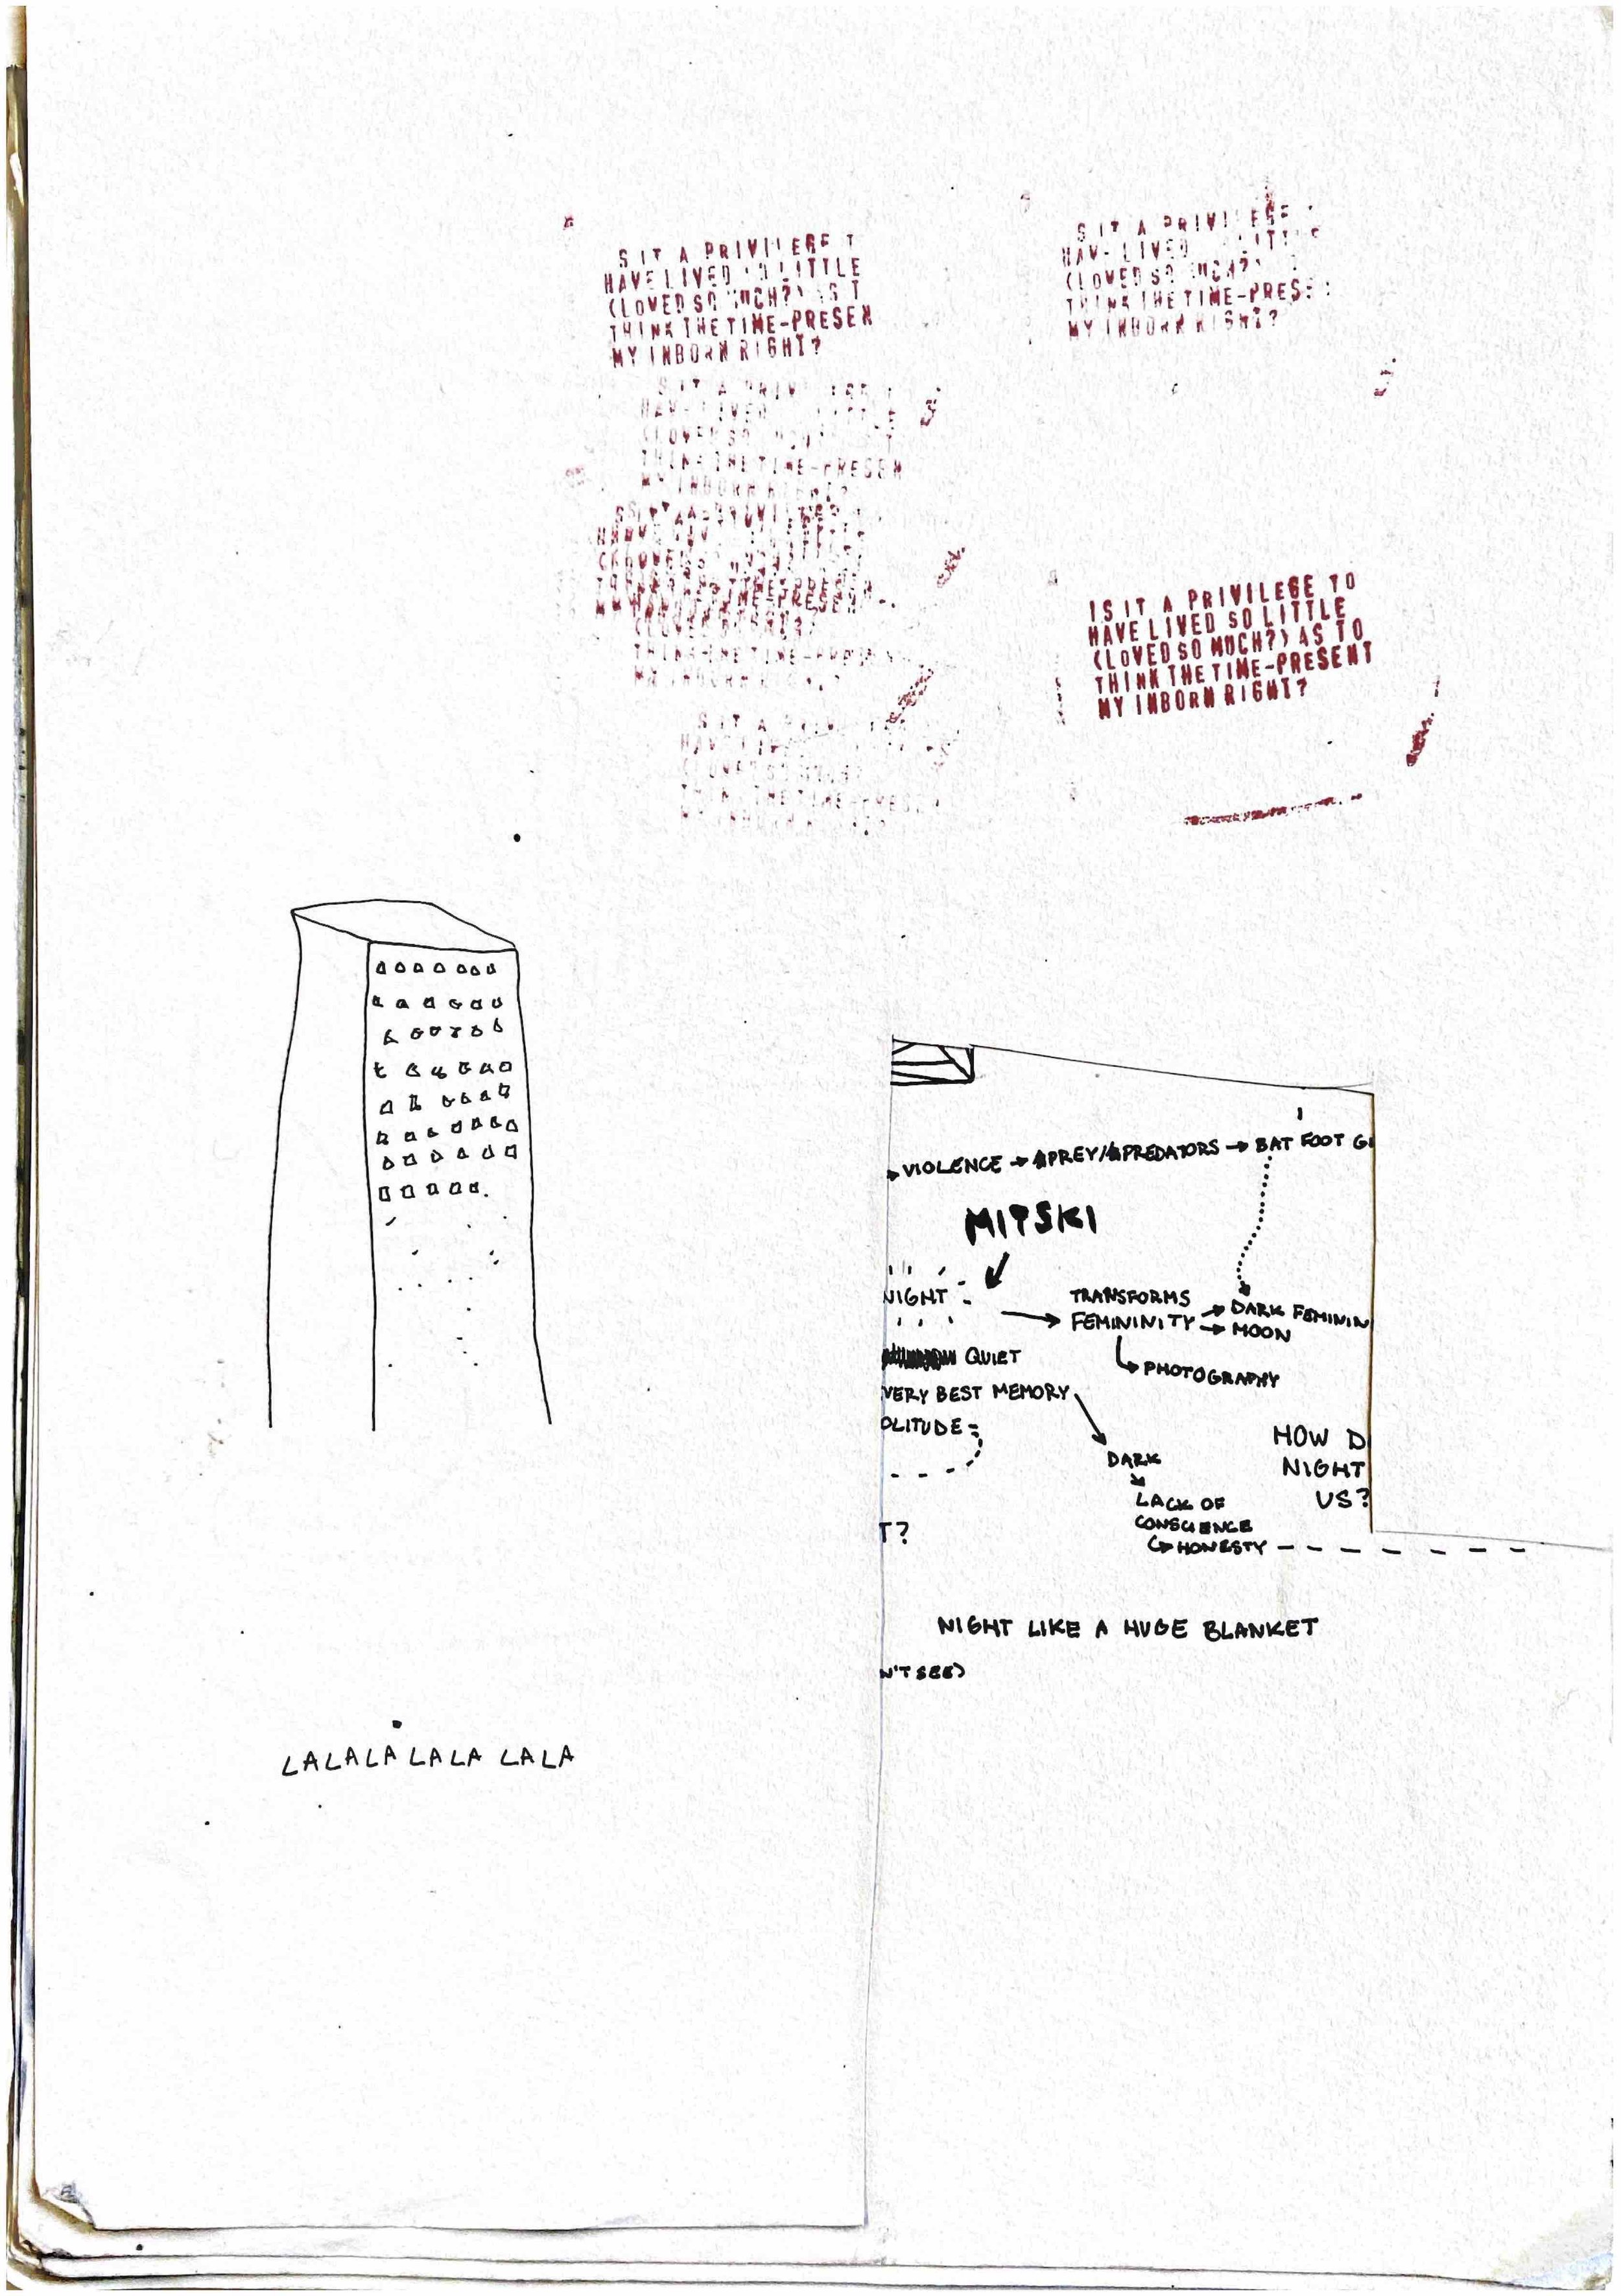 S IT A PRIVILEGE T
HAVE LIVED SO LITTLE
(LOVED SO MUCH?) AS T
THINK THE TIME-PRESEN
MY INBORN RIGHT?
S IT A PRIVILEGE
HAVE LIVED LITT
(LOVED SO MUCH?)
THINK THE TIME-PRES
MY INBORN RIGHT?
THINK THE TIME-PRESEN
MY INBORN
IS IT A PRIVILEGE TO
HAVE LIVED SO LITTLE
(LOVED SO MUCH?) AS TO
THINK THE TIME-PRESENT
MY INBORN RIGHT?
THINK THE TIME-
S IT A
THE TIME-PRESEN
→ VIOLENCE → PREY/PREDATORS → BAT FOOT GI
MITSKI
NIGHT
TRANSFORMS
FEMININITY → DARK FEMININ
→ MOON
PHOTOGRAPHY
QUIET
VERY BEST MEMORY
OLITUDE
DARK
LACK OF
CONSCIENCE
HONESTY
HOW D
NIGHT
US?
T?
NIGHT LIKE A HUGE BLANKET
N'T SEE)
LALALA LALA LALA